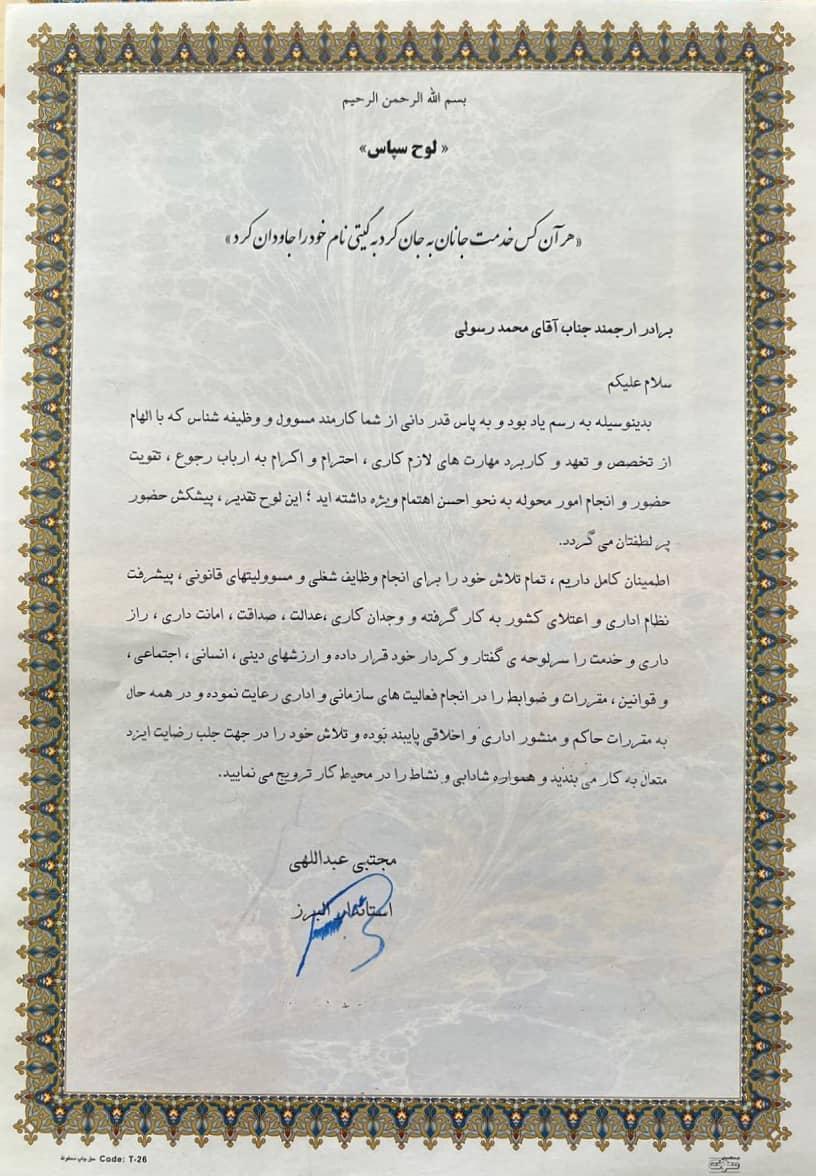 بسم الله الرحمن الرحیم
« لوح سپاس»
«هر آن کس خدمت جانان به جان کرد به گیتی نام خود را جاودان کرد»
برادر ارجمند جناب آقای محمد رسولی
سلام علیکم
بدینوسیله به رسم یاد بود و به پاس قدر دانی از شما کارمند مسوول و وظیفه شناس که با الهام
از تخصص و تعهد و کاربرد مهارت های لازم کاری ، احترام و اکرام به ارباب رجوع ، تقویت
حضور و انجام امور محوله به نحو احسن اهتمام ویژه داشته اید ؛ این لوح تقدیر ، پیشکش حضور
پر لطفتان می گردد.
اطمینان کامل داریم ، تمام تلاش خود را برای انجام وظایف شغلی و مسوولیتهای قانونی ، پیشرفت
نظام اداری و اعتلای کشور به کار گرفته و وجدان کاری ،عدالت ، صداقت ، امانت داری ، راز
داری و خدمت را سرلوحه ی گفتار و کردار خود قرار داده و ارزشهای دینی ، انسانی ، اجتماعی ،
و قوانین ، مقررات و ضوابط را در انجام فعالیت های سازمانی و اداری رعایت نموده و در همه حال
به مقررات حاکم و منشور اداری و اخلاقی پایبند بوده و تلاش خود را در جهت جلب رضایت ایزد
متعال به کار می بندید و همواره شادابی و نشاط را در محیط کار ترویج می نمایید.
مجتبی عبداللهی
استاندار البرز
Code: T-26 حق چاپ محفوظ